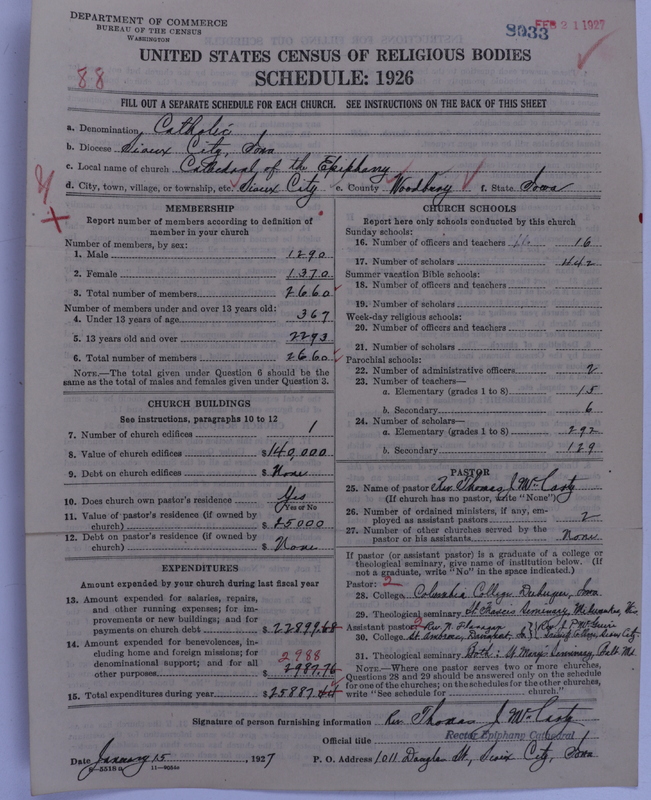 DEPARTMENT OF COMMERCE
BUREAU OF THE CENSUS
WASHINGTON
8033
FEB 21 1927
88
UNITED STATES CENSUS OF RELIGIOUS BODIES
SCHEDULE: 1926
FILL OUT A SEPARATE SCHEDULE FOR EACH CHURCH. SEE INSTRUCTIONS ON THE BACK OF THIS SHEET
a. Denomination Catholic
b. Diocese Sioux City, Iowa
c. Local name of church Cathedral of the Epiphany
d. City, town, village, or township, etc. Sioux City e. County Woodbury f. State Iowa
MEMBERSHIP
Report number of members according to definition of
member in your church
Number of members, by sex:
1. Male 1290
2. Female 1370
3. Total number of members 2660
Number of members under and over 13 years old:
4. Under 13 years of age 367
5. 13 years old and over 2293
6. Total number of members 2660
NOTE.—The total given under Question 6 should be the
same as the total of males and females given under Question 3.
CHURCH BUILDINGS
See instructions, paragraphs 10 to 12
7. Number of church edifices 1
8. Value of church edifices $140,000
9. Debt on church edifices $ None
10. Does church own pastor's residence Yes
Yes or No
11. Value of pastor's residence (if owned by
church) $25000
12. Debt on pastor's residence (if owned by
church) $ None
EXPENDITURES
Amount expended by your church during last fiscal year
13. Amount expended for salaries, repairs,
and other running expenses; for im-
provements or new buildings; and for
payments on church debt $22899.68
14. Amount expended for benevolences, in-
cluding home and foreign missions; for
denominational support; and for all 2988
other purposes 2987.76
15. Total expenditures during year $25887.44
CHURCH SCHOOLS
Report here only schools conducted by this church
Sunday schools:
16. Number of officers and teachers 16
17. Number of scholars 442
Summer vacation Bible schools:
18. Number of officers and teachers
19. Number of scholars
Week-day religious schools:
20. Number of officers and teachers
21. Number of scholars
Parochial schools:
22. Number of administrative officers 2
23. Number of teachers—
a. Elementary (grades 1 to 8) 15
b. Secondary 6
24. Number of scholars—
a. Elementary (grades 1 to 8) 292
b. Secondary 129
PASTOR
25. Name of pastor Rev. Thomas J. McCarty
(If church has no pastor, write "None")
26. Number of ordained ministers, if any, em-
ployed as assistant pastors 2
27. Number of other churches served by the
pastor or his assistants None
If pastor (or assistant pastor) is a graduate of a college or
theological seminary, give name of institution below. (If
not a graduate, write "No" in the space indicated.)
Pastor: 2
28. College Columbia College, Dubuque, Iowa
29. Theological seminary St Francis Seminary, Milwaukee Wis.
Assistant pastor: 2 Rev. Flanagan Rev. J. P.
30. College St Ambrose, Davenport, Ia. Trinity College, Sioux City
31. Theological seminary Both: St Marys Seminary, Balt. Md.
NOTE.—Where one pastor serves two or more churches,
Questions 28 and 29 should be answered only on the schedule
for one of the churches; on the schedules for the other churches,
write "See schedule for church."
Signature of person furnishing information Rev. Thomas J. McCarty
Official title Rector Epiphany Cathedral
Date January 15, 1927 P. O. Address 1011 Douglas St, Sioux City, Iowa